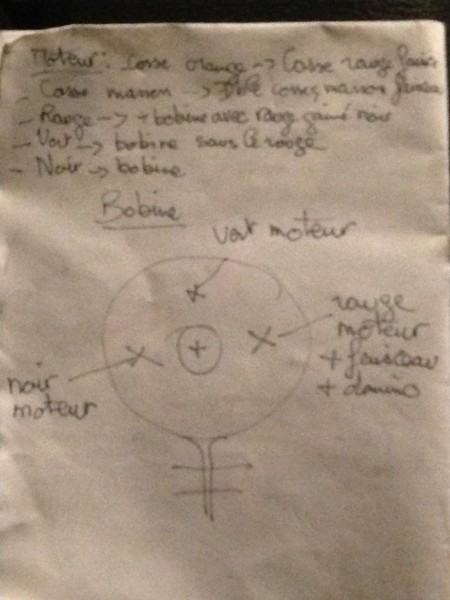 Moteur: Cosse orange -> Cosse rouge faisc
- Cosse marron -> cosses marron faisceau
- Rouge -> + bobine avec rouge gainé noir
- Vert -> bobine sous le rouge
- Noir -> bobine
Bobine
Vert moteur
+
rouge
moteur
+ faisceau
+ domino
noir
moteur